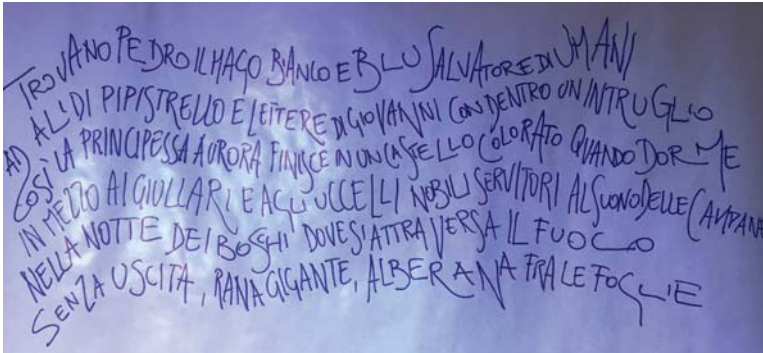 TROVANO PEDRO IL MAGO BIANCO E BLU SALVATORE DI UMANI
AD ALI DI PIPISTRELLO E LETTERE DI GIOVANNI CON DENTRO UN INTRUGLIO
COSÌ LA PRINCIPESSA AURORA FINISCE IN UN CASTELLO COLORATO QUANDO DORME
IN MEZZO AI GIULLARI E AGLI UCCELLI NOBILI SERVITORI AL SUONO DELLE CAMPANE
NELLA NOTTE DEI BOSCHI DOVE SI ATTRAVERSA IL FUOCO
SENZA USCITA, RANA GIGANTE, ALBERANA FRA LE FOGLIE